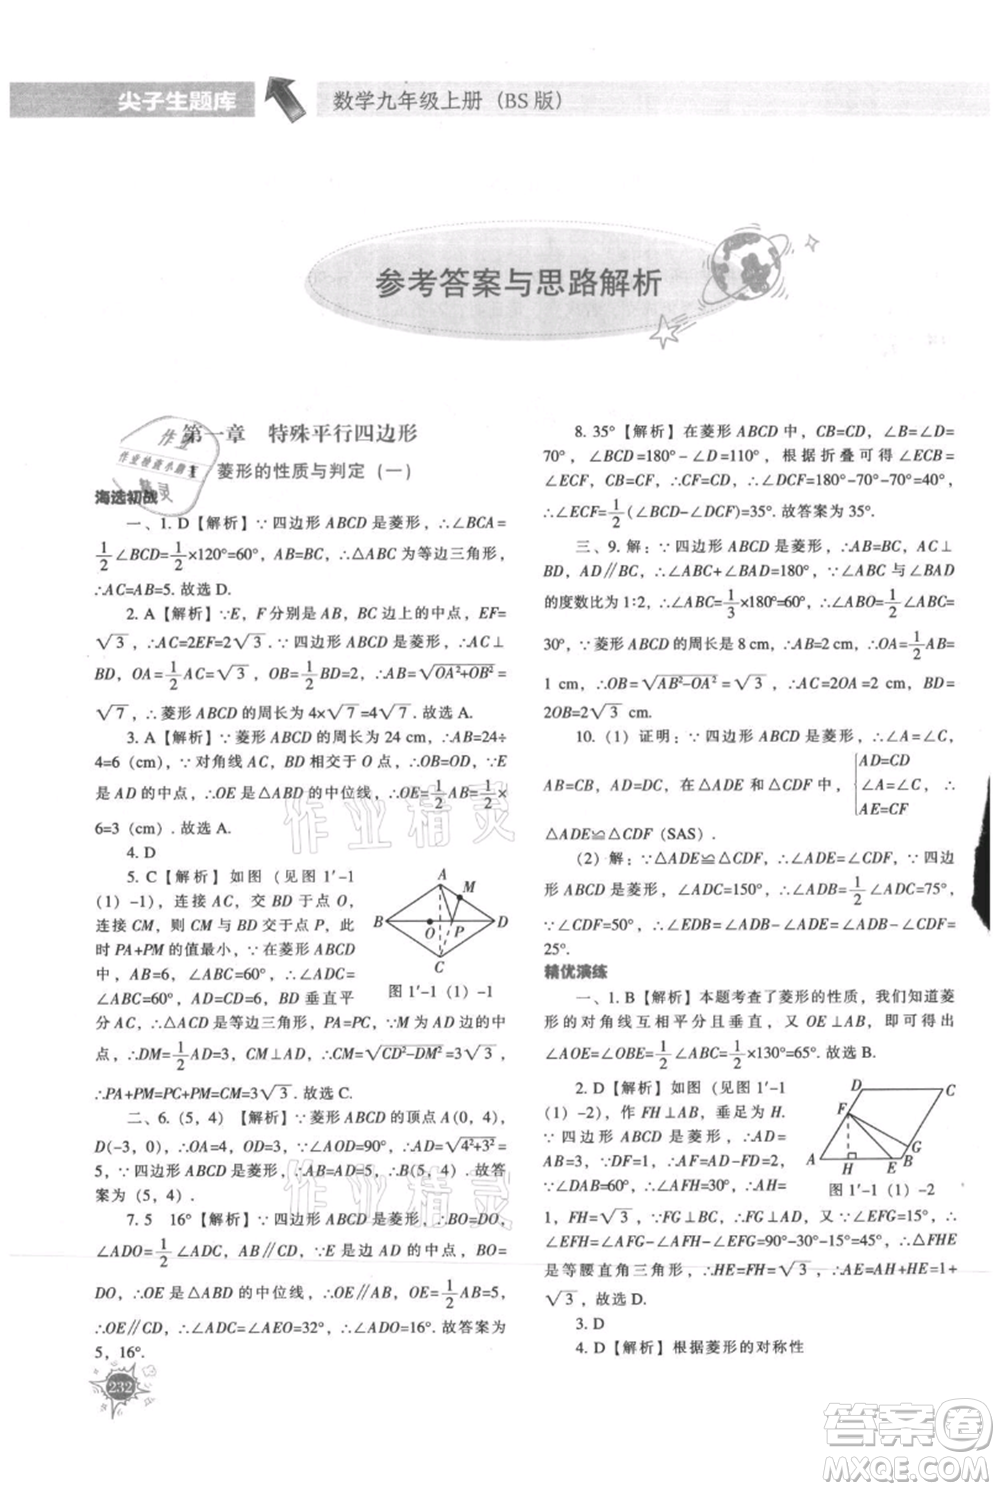 尖子生题库
数学九年级上册（BS版）
参考答案与思路解析
第一章 特殊平行四边形
1 菱形的性质与判定（一）
海选初战
一、1. D【解析】∵四边形ABCD是菱形，∴∠BCA=
1/2∠BCD=1/2×120°=60°，AB=BC，∴△ABC为等边三角形，
∴AC=AB=5. 故选D.
2. A【解析】∵E，F分别是AB，BC边上的中点，EF=
√3，∴AC=2EF=2√3∵四边形ABCD是菱形，∴AC⊥
BD，OA=1/2AC=√3，OB=1/2BD=2，∴AB=√(OA²+OB²)=
√7，∴菱形ABCD的周长为4×√7=4√7. 故选A.
3. A【解析】∵菱形ABCD的周长为24 cm，∴AB=24÷
4=6（cm），∵对角线AC、BD相交于O点，∴OB=OD，∵E
是AD的中点，∴OE是△ABD的中位线，∴OE=1/2AB=1/2×
6=3（cm）. 故选A.
4. D
5. C【解析】如图（见图1′-1
（1）-1），连接AC交BD于点O，
连接CM，则CM与BD交于点P，此
时PA+PM的值最小，∵在菱形ABCD
中，AB=6，∠ABC=60°，∴∠ADC=
60°，AD=CD=6，∵BD垂直平
分AC，∴△ACD是等边三角形，∴PA=PC，∵M为AD中
点，∴DM=1/2AD=3，CM⊥AD，∴CM=√(CD²-DM²)=3√3，
∴PA+PM=PC+PM=CM=3√3. 故选C.
A
M
B
O
P
D
C
图1′-1（1）-1
二、6.（5，4）【解析】∵菱形ABCD的顶点A(0，4)，
D(-3，0)，∴OA=4，OD=3，∵∠AOD=90°，∴AD=√(4²+3²)=
5，∵四边形ABCD是菱形，∴AB=AD=5，∴B（5，4）. 故答
案为（5，4）.
7. 5 16°【解析】∵四边形ABCD是菱形，∴BO=DO，
∠ADO=1/2∠ADC，∵E是菱形ABCD的边AD的中点，BO=
DO，∴OE是△ABD的中位线，∴OE∥AB，OE=1/2AB=5，
∴OE∥CD，∴∠ADC=∠AEO=32°，∴∠ADO=16°. 故答案为
5，16°.
232
8. 35°【解析】在菱形ABCD中，CB=CD，∠B=∠D=
70°，∴∠BCD=180°-∠B=110°，根据折叠可得∠BCE=
∠ECF，CB=CF，∴CF=CD，∴∠DCF=180°-70°-70°=40°，
∴∠ECF=1/2（∠BCD-∠DCF）=35°. 故答案为35°.
三、9. 解：∵四边形ABCD是菱形，∴AB=BC，AC⊥
BD，AD∥BC，∴∠ABC+∠BAD=180°，∵∠ABC与∠BAD
的度数比为1∶2，∴∠ABC=1/3×180°=60°，∴∠ABO=1/2∠ABC=
30°，∵菱形ABCD的周长是8 cm，∴AB=2 cm，∴OA=1/2AB=
1 cm，∴OB=√(AB²-OA²)=√3，∴AC=2OA=2 cm，BD=
2OB=2√3 cm.
10.（1）证明：∵四边形ABCD是菱形，∴∠A=∠C，
AB=CB=AD=CD，在△ADE和△CDF中，{AD=CD ∠A=∠C AE=CF，∴
△ADE≌△CDF（SAS）.
（2）解：∵△ADE≌△CDF，∴∠ADE=∠CDF，∵四边
形ABCD是菱形，∠ADC=150°，∴∠ADB=1/2∠ADC=75°，
∵∠CDF=50°，∴∠EDB=∠ADB-∠ADE=∠ADB-∠CDF=
25°.
精优演练
一、1. B【解析】本题考查了菱形的性质，我们知道菱
形的对角线互相平分且垂直，又OE⊥AB，即可得出
∠AOE=∠OBE=1/2∠ABC=1/2×130°=65°. 故选B.
2. D【解析】如图（见图1′-1
（1）-2），作FH⊥AB，垂足为H.
∵四边形ABCD是菱形，∴AD=AB，
∵DF=AD-AF，BG=AB-AG，AF=
AG，∴DF=BG=2，∵AD=4-2=2，
∵∠DAB=60°，∠AFH=30°，∴AH=
1，FH=√3，∵FG⊥BC，∴FG⊥AD，又∵∠EFG=15°，
∴∠EFH=∠AFG-∠AFH-∠EFG=90°-30°-15°=45°，∴△FHE
是等腰直角三角形，∴HE=FH=√3，∴AE=AH+HE=1+
√3，故选D.
D
C
F
G
A
H
E
B
图1′-1（1）-2
3. D
4. D【解析】根据菱形的对称性
作业精灵
作业精灵
答案圈
MXQE.COM